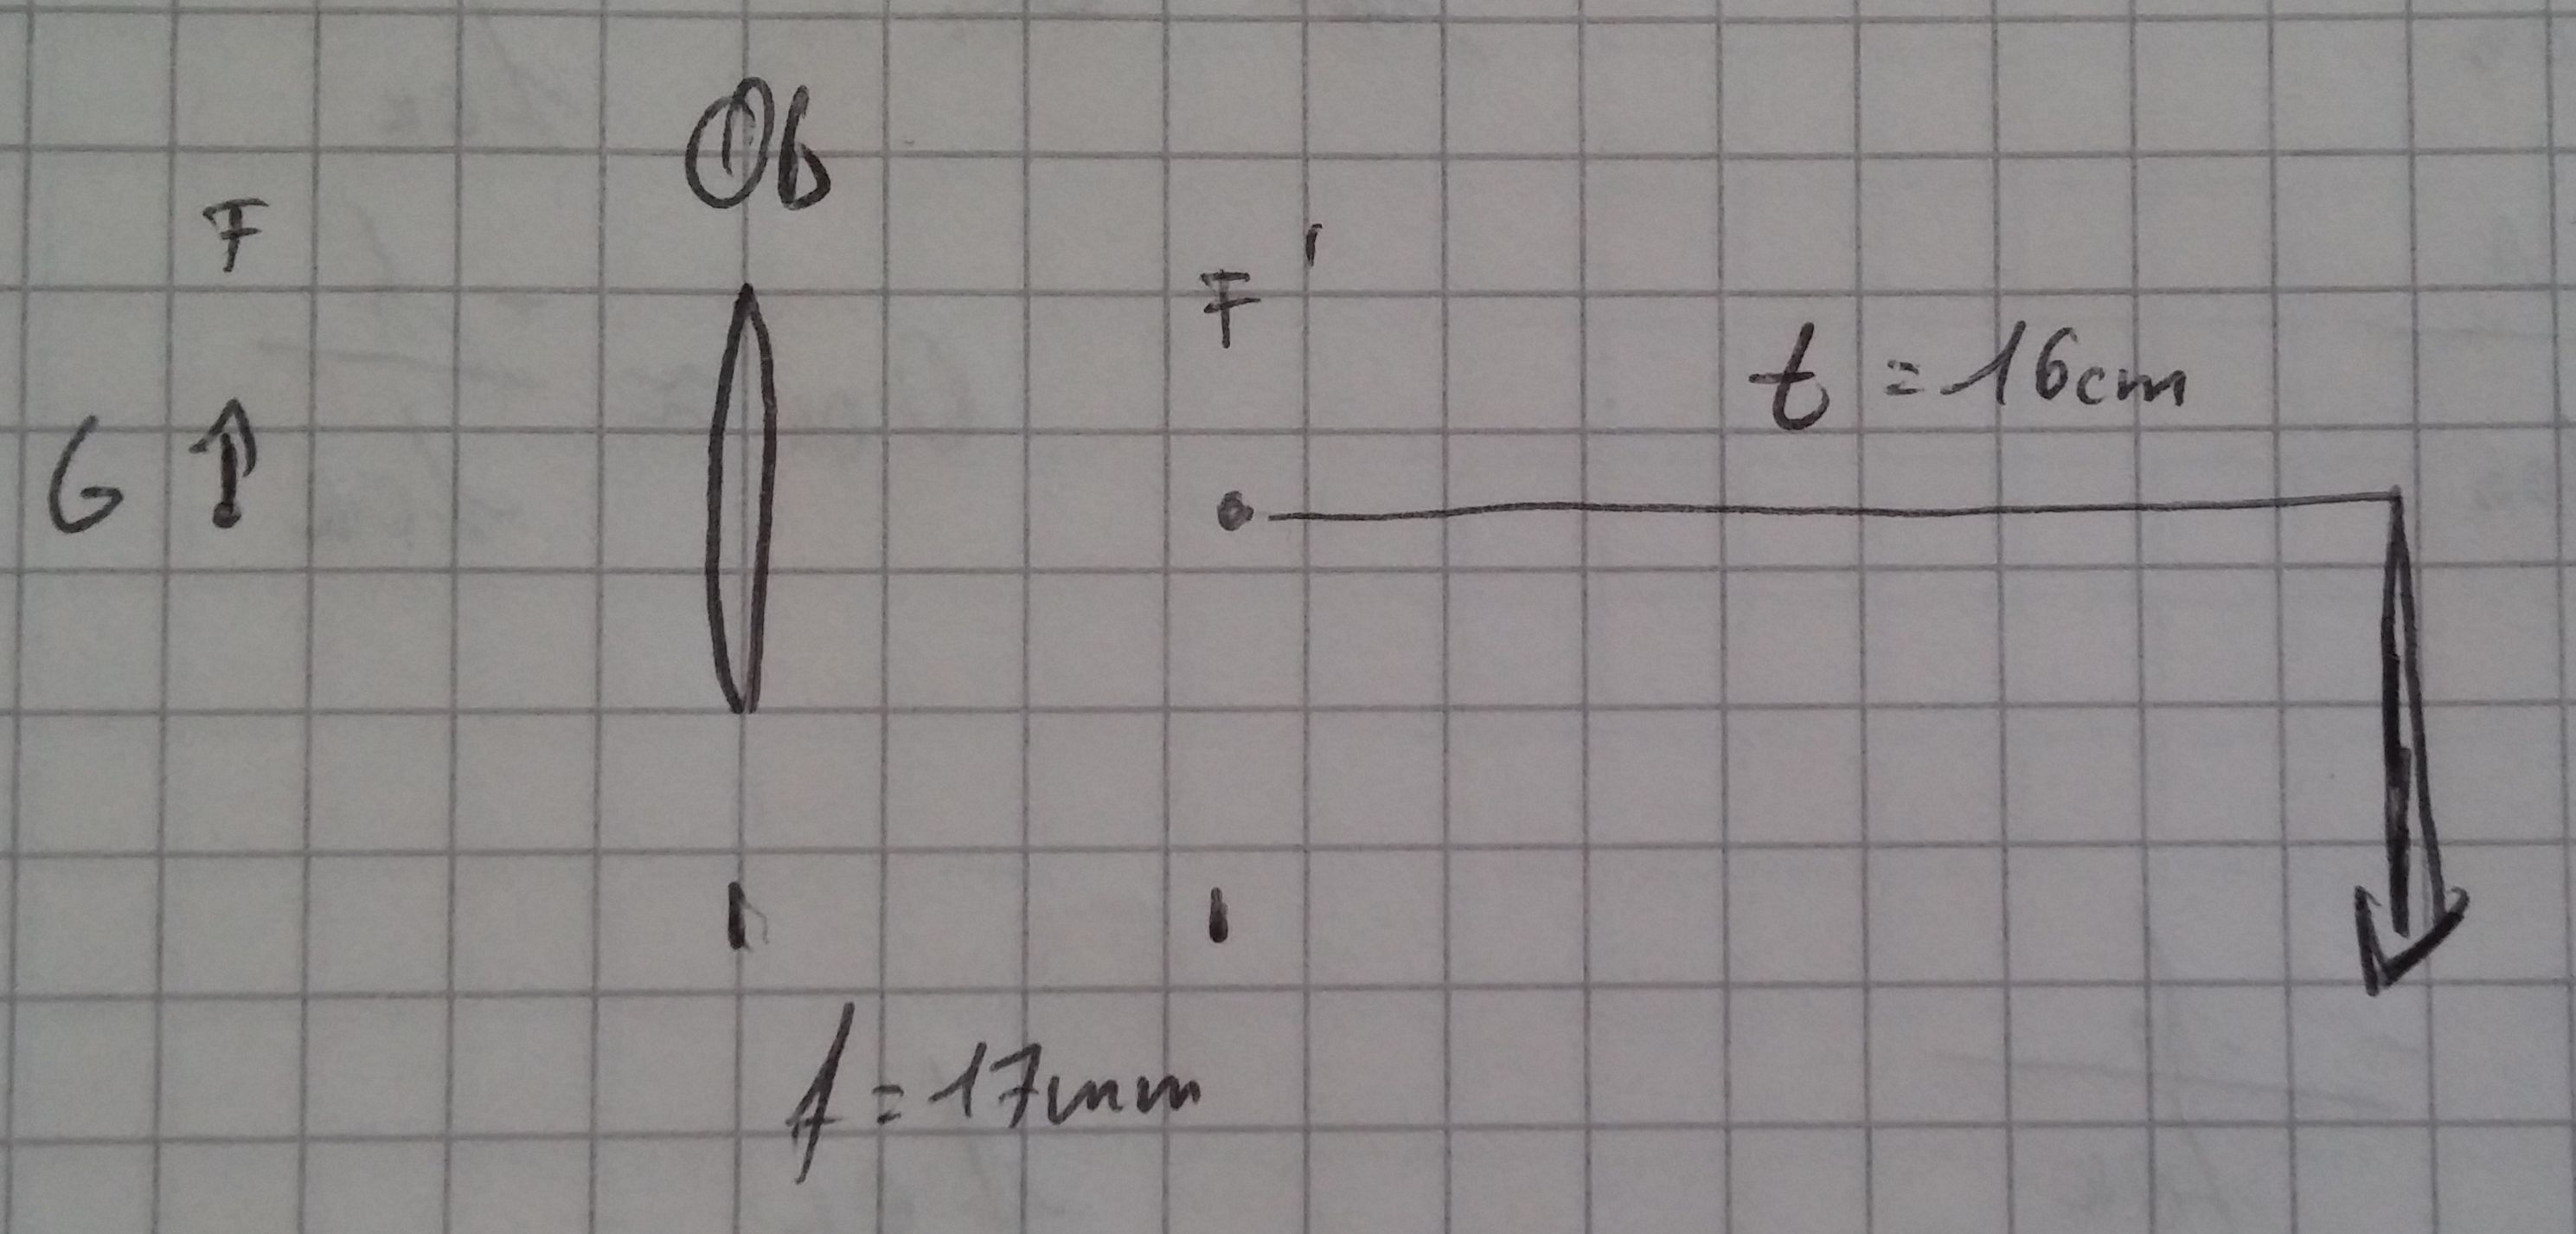 Ob
F
F'
t = 16cm
G
f = 17mm